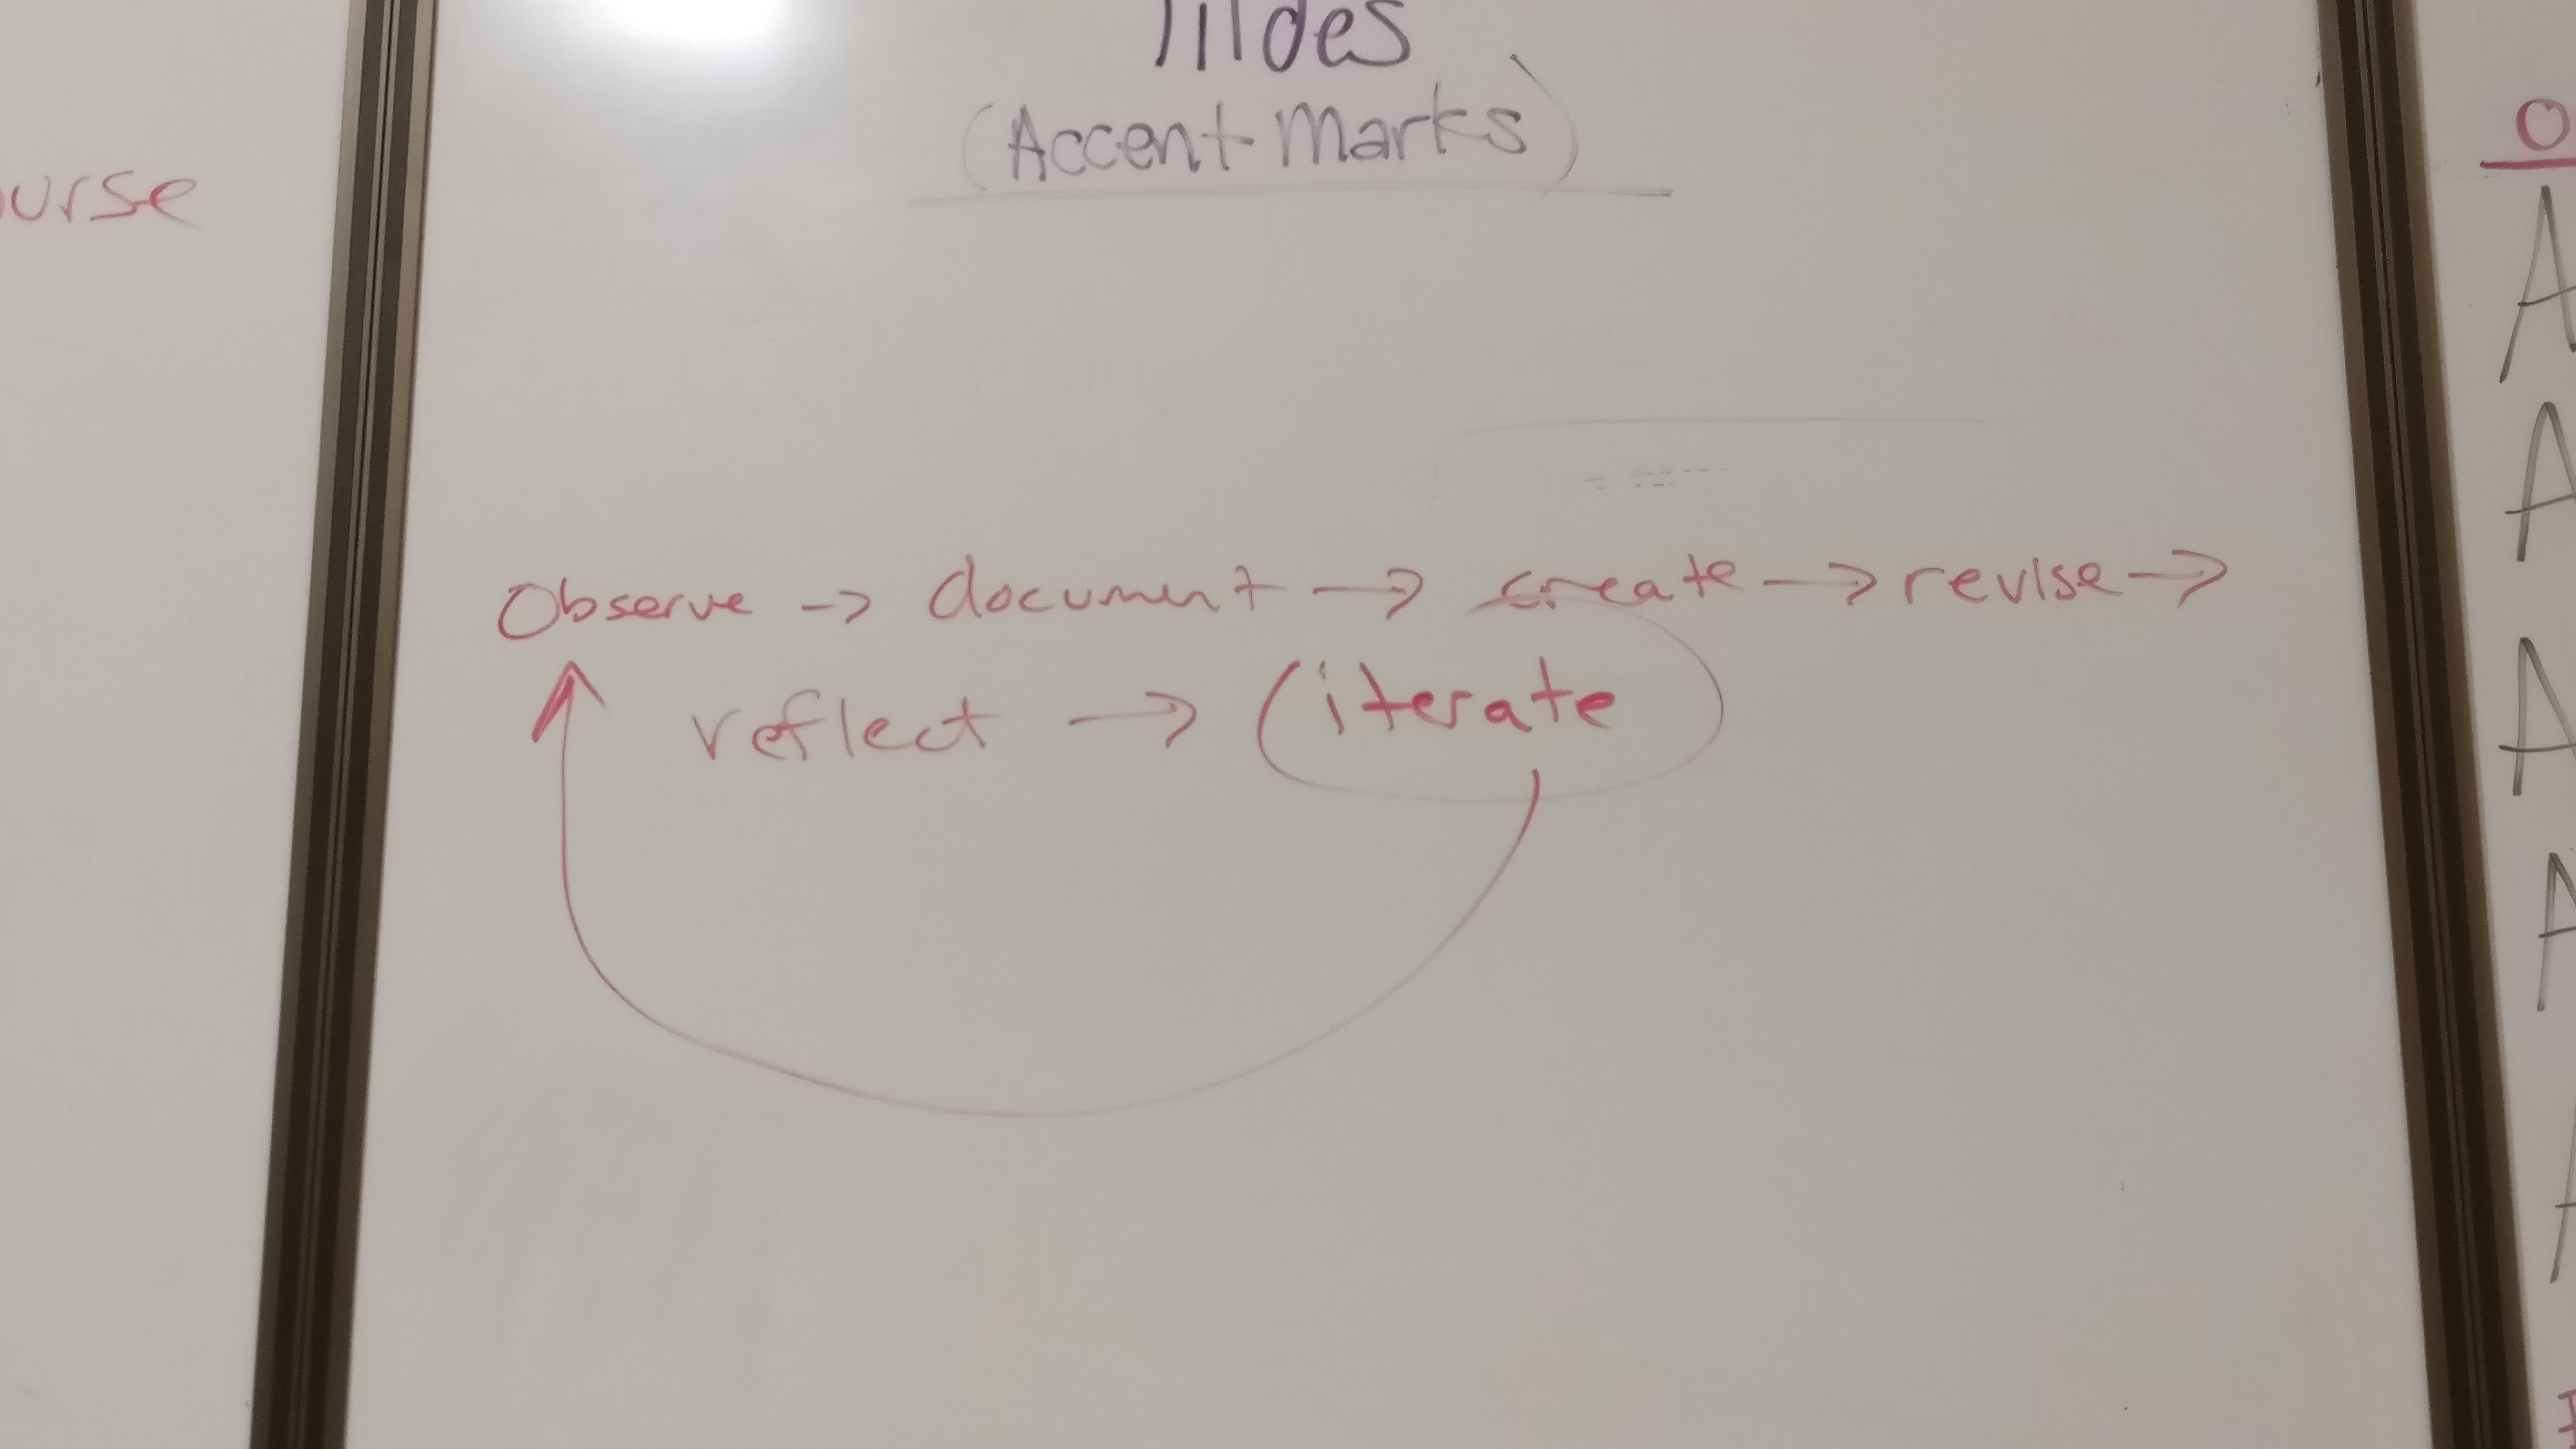 Tildes
(Accent Marks)
Observe -> document -> create -> revise ->
reflect -> (iterate